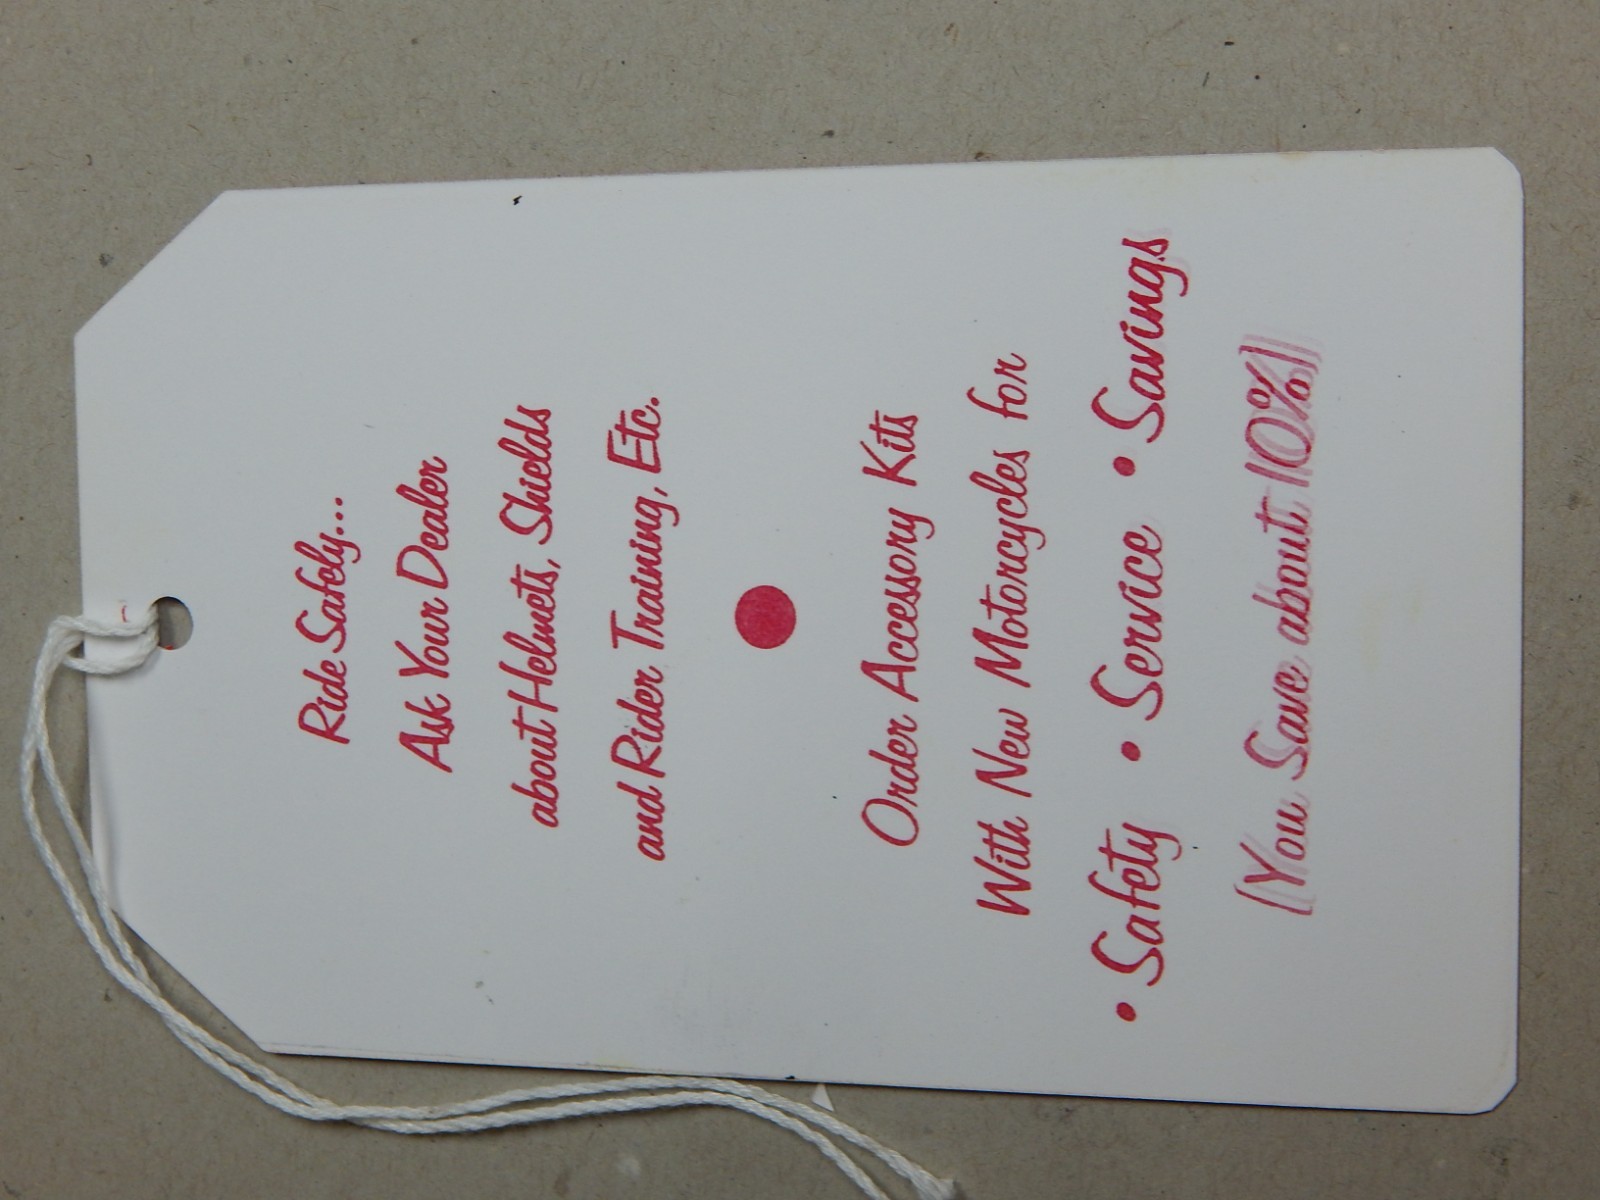 Ride Safely...
Ask Your Dealer
about Helmets, Shields
and Rider Training, Etc.
Order Accessory Kits
With New Motorcycles for
• Safety • Service • Savings
(You Save about 10%)